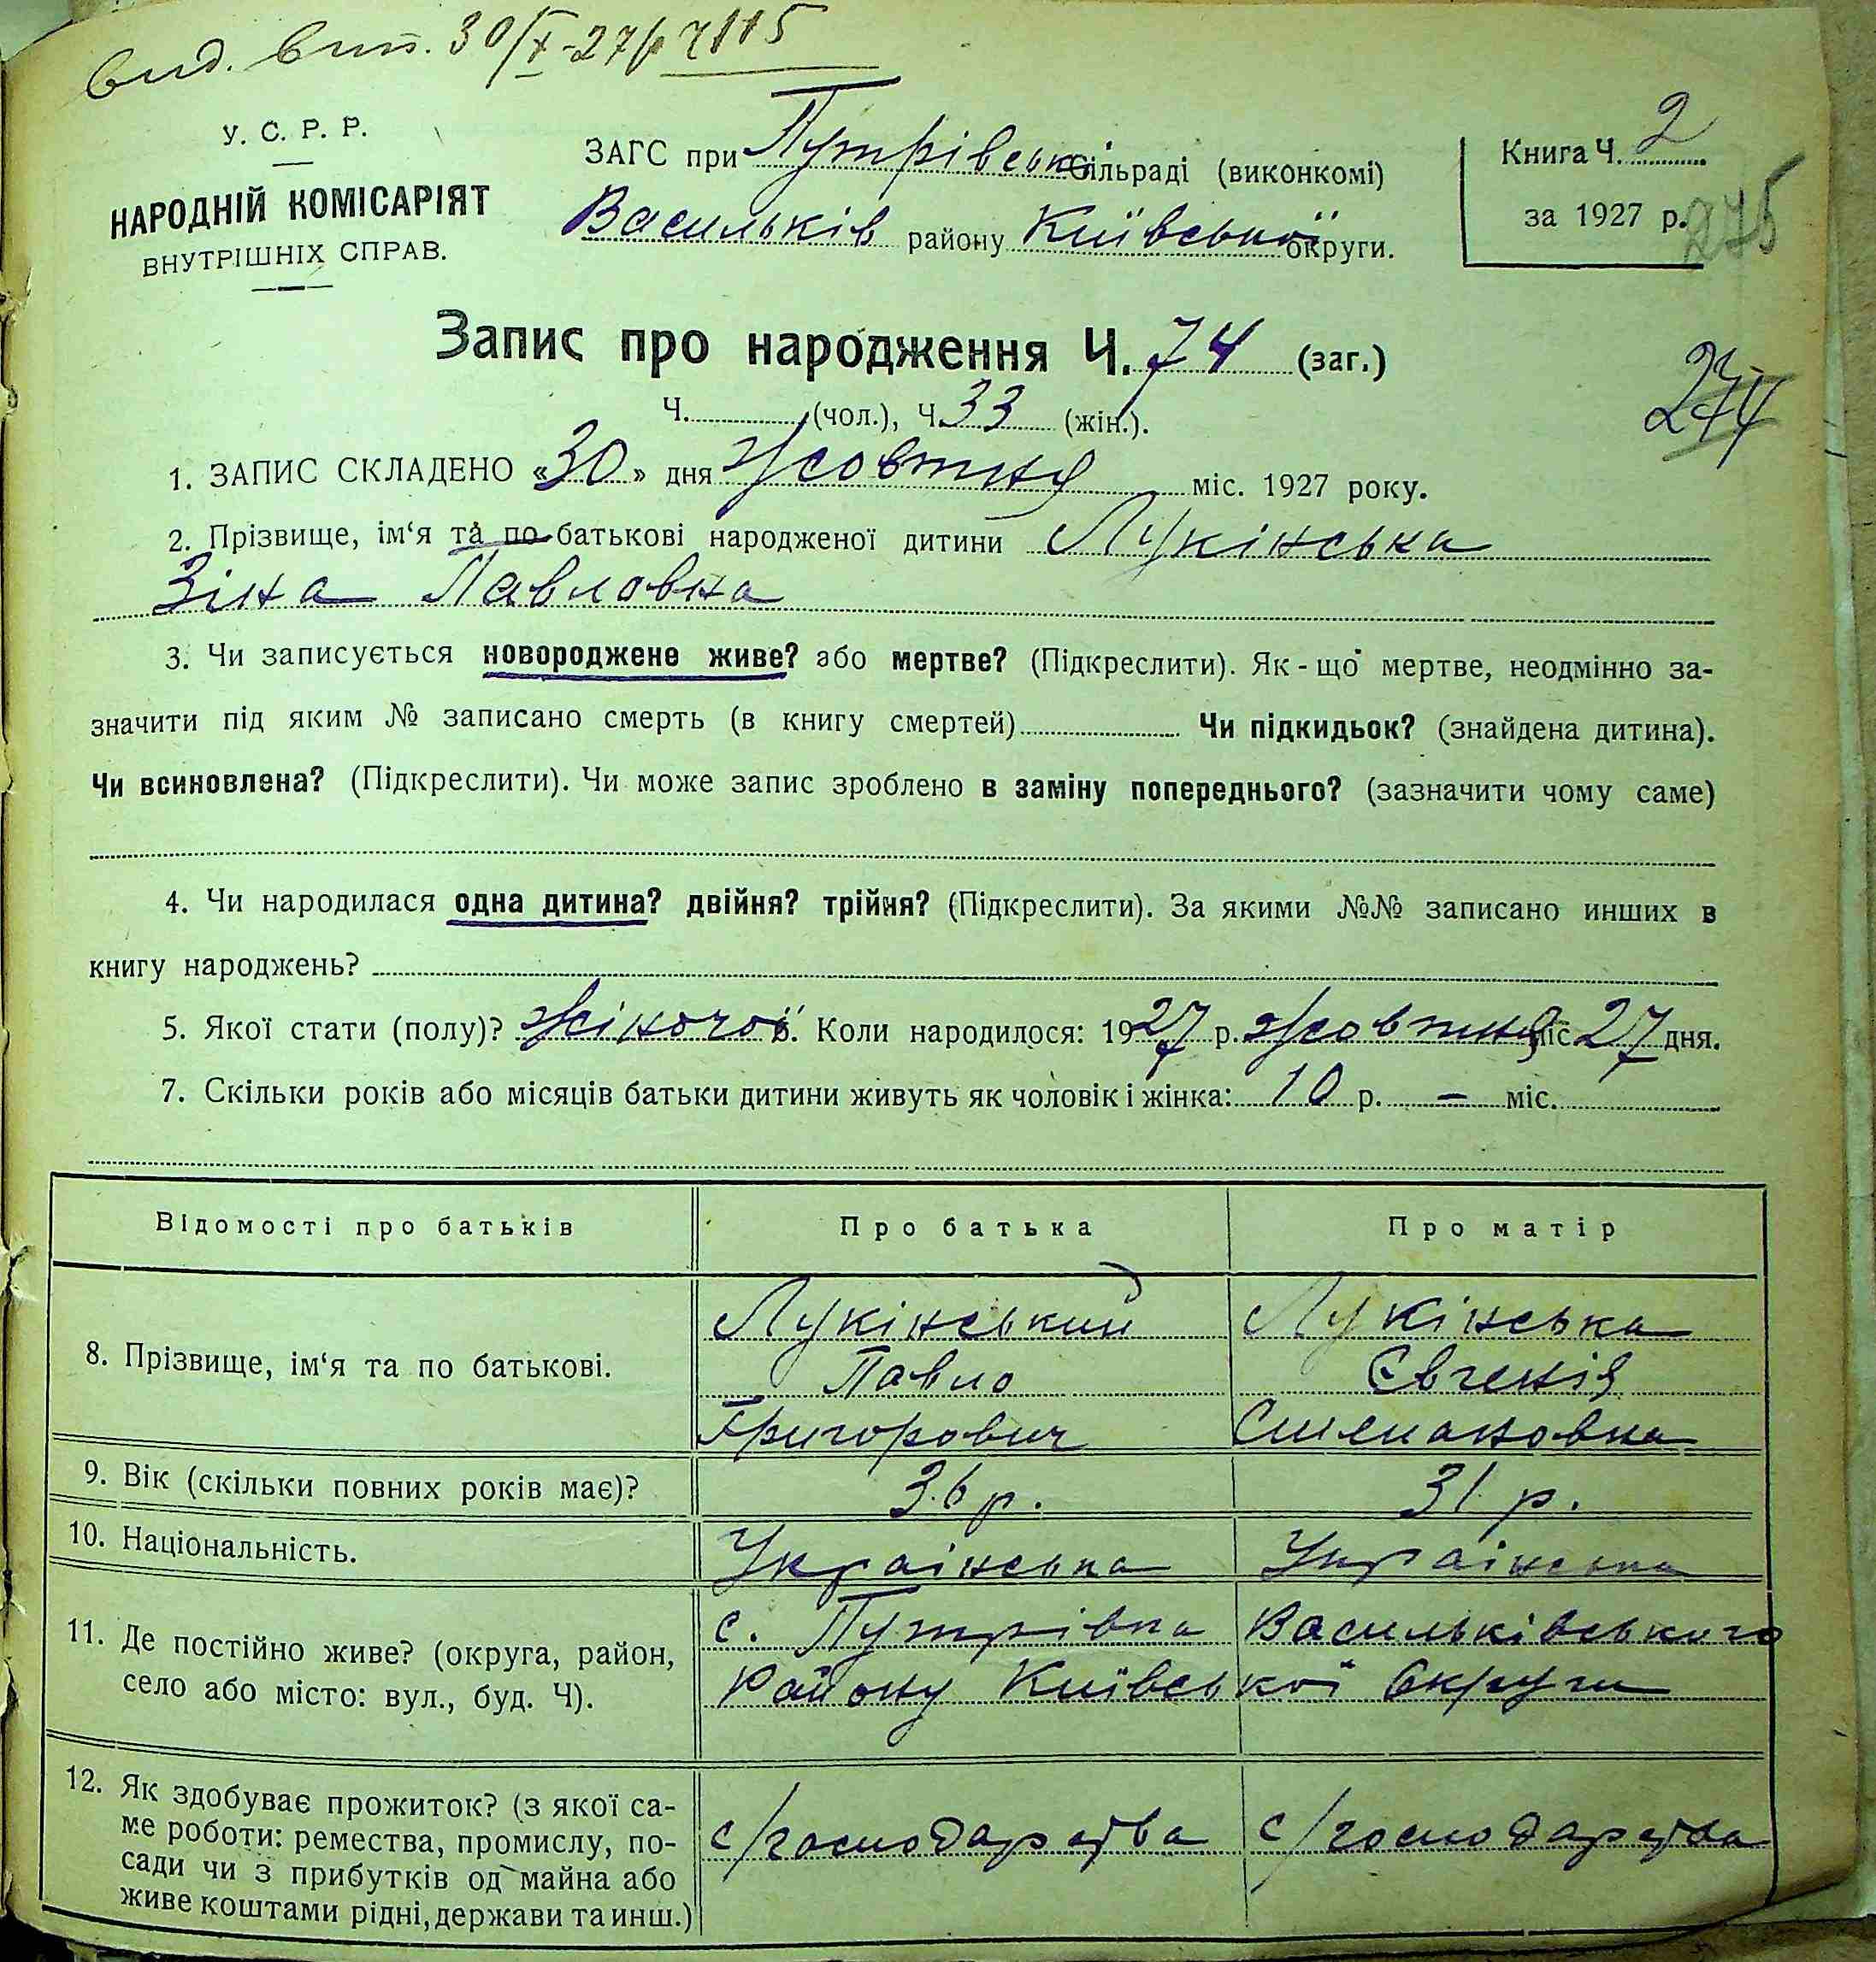 вид. вип. 30/X-27р 7115
У. С. Р. Р.
НАРОДНІЙ КОМІСАРІЯТ
ВНУТРІШНІХ СПРАВ.
ЗАГС при Путрівськ сільраді (виконкомі)
Васильків району Київської округи.
Книга Ч. 2
за 1927 р.
275
Запис про народження Ч. 74 (заг.)
274
Ч. (чол.), Ч. 33 (жін.).
1. ЗАПИС СКЛАДЕНО «30» дня жовтня міс. 1927 року.
2. Прізвище, ім‘я та по батькові народженої дитини Лукінська
Зіна Павловна
3. Чи записується новороджене живе? або мертве? (Підкреслити). Як-що мертве, неодмінно за-
значити під яким № записано смерть (в книгу смертей) Чи підкидьок? (знайдена дитина).
Чи всиновлена? (Підкреслити). Чи може запис зроблено в заміну попереднього? (зазначити чому саме)
4. Чи народилася одна дитина? двійня? трійня? (Підкреслити). За якими №№ записано инших в
книгу народжень?
5. Якої стати (полу)? жіночої 6. Коли народилося: 1927 р. жовтня міс 27 дня.
7. Скільки років або місяців батьки дитини живуть як чоловік і жінка: 10 р. – міс.
Відомості про батьків Про батька Про матір
8. Прізвище, ім‘я та по батькові.
Лукінський Лукінська
Павло Євгенія
Григорович Симеоновна
9. Вік (скільки повних років має)? 36 р. 31 р.
10. Національність. Українська Українська
11. Де постійно живе? (округа, район,
село або місто: вул., буд. Ч).
с. Путрівка Васильківського
Району Київської Округи
12. Як здобуває прожиток? (з якої са-
ме роботи: ремества, промислу, по-
сади чи з прибутків од майна або
живе коштами рідні, держави та инш.)
с/господарства с/господарства